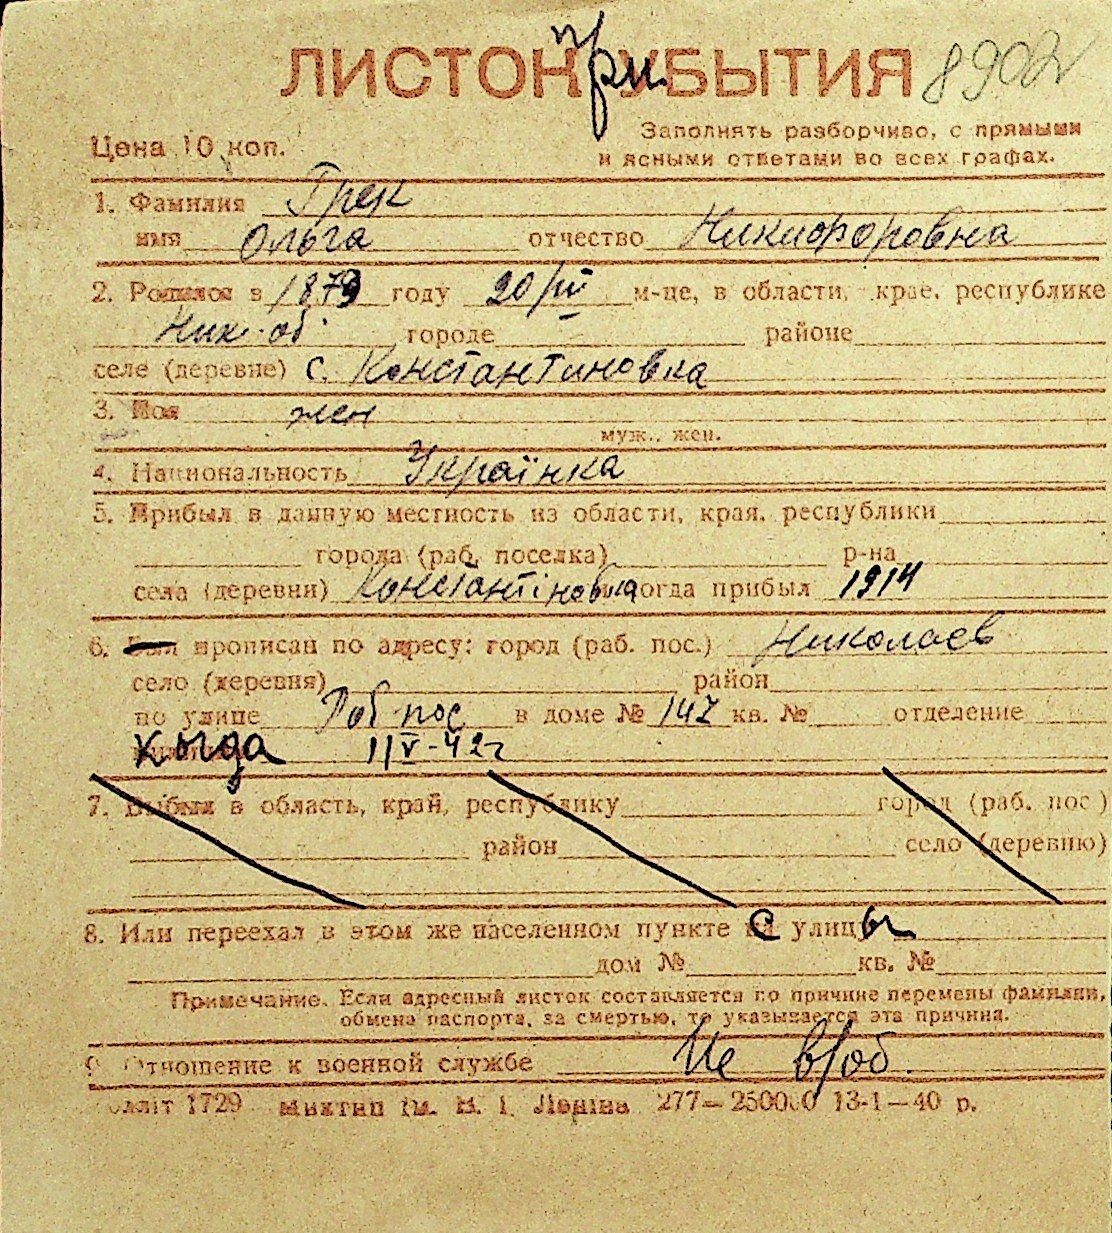 ЛИСТОК при УБЫТИЯ 8902
Цена 10 коп.
Заполнять разборчиво, с прямыми
и ясными ответами во всех графах.
1. Фамилия Грек
имя Ольга отчество Никифоровна
2. Родился в 1879 году 20/III м-це, в области, крае, республике
Ник. об. городе районе
селе (деревне) с. Константиновка
3. Пол жен
муж., жен.
4. Национальность Українка
5. Прибыл в данную местность из области, края, республики
города (раб. поселка) р-на
села (деревни) Константіновка и когда прибыл 1914
6. Был прописан по адресу: город (раб. пос.) Николаев
село (деревня) район
по улице Роб пос в доме № 147 кв. № отделение
Когда 11/V-42г
7. Выбыл в область, край, республику город (раб. пос.)
район село (деревню)
8. Или переехал в этом же населенном пункте с улицы
дом № кв. №
Примечание. Если адресный листок составляется по причине перемены фамилии,
обмена паспорта, за смертью, то указывается эта причина.
9. Отношение к военной службе Не в/об.
1729 Миктип ім. В. І. Леніна 277—250000 13-1—40 р.